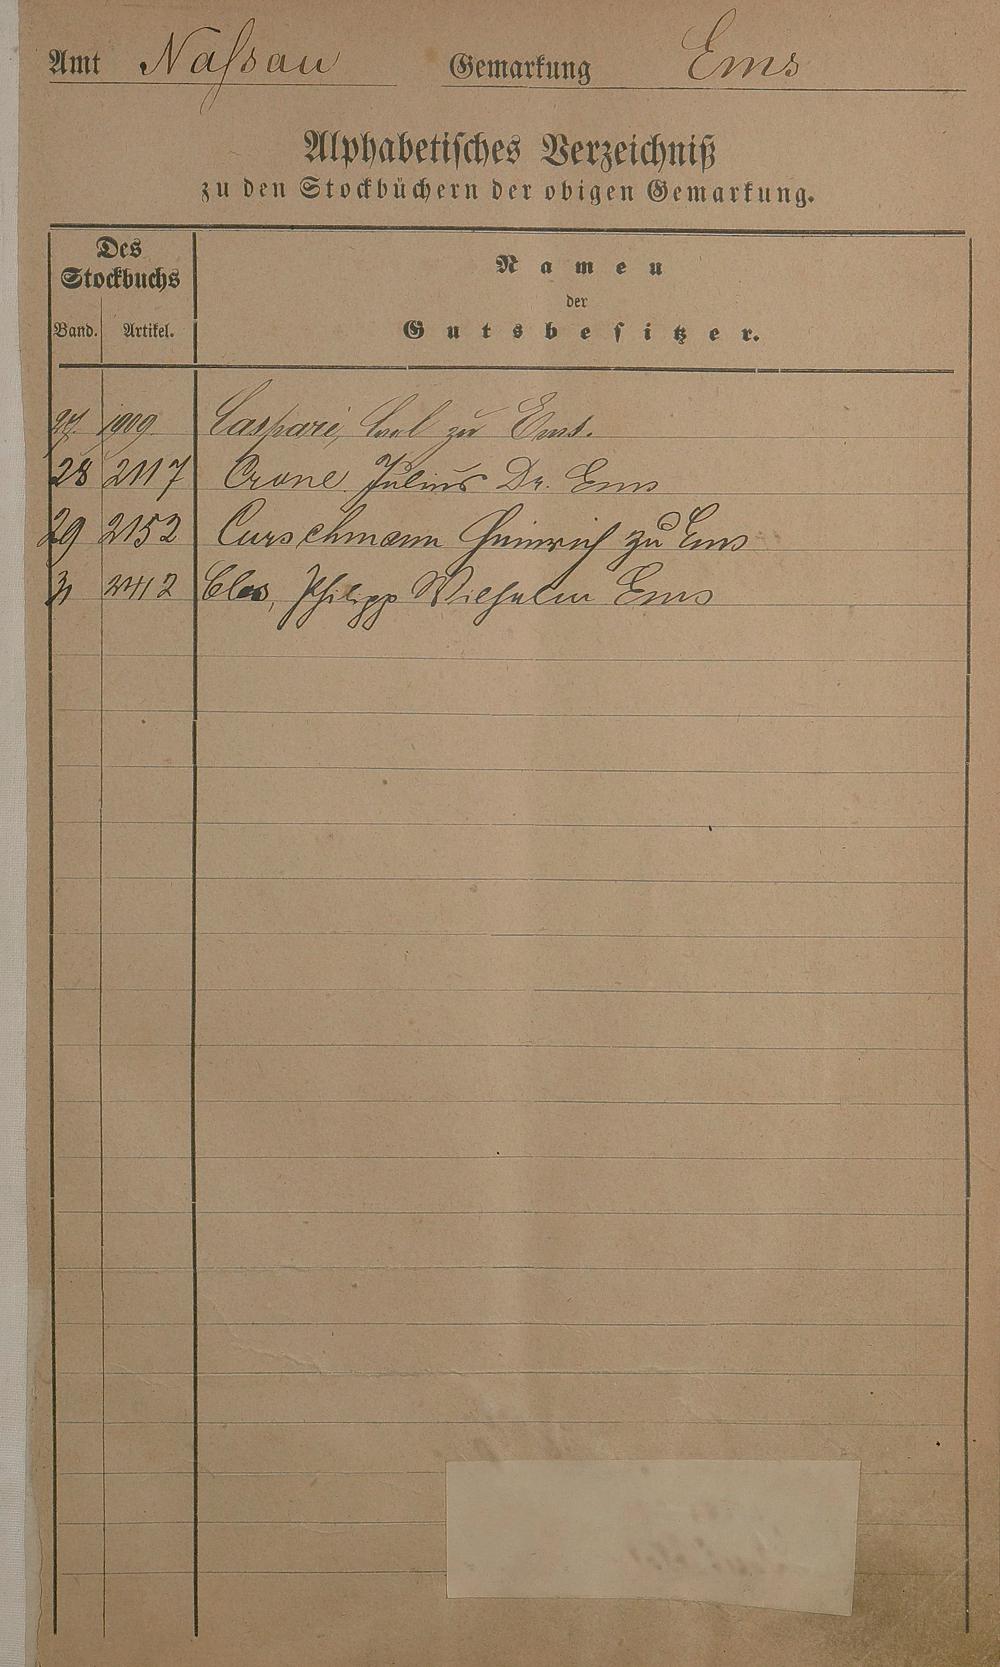 Amt Naſsau Gemarkung Ems
Alphabetiſches Verzeichniß
zu den Stockbüchern der obigen Gemarkung.
Des
Stockbuchs
Band. Artikel.
Namen
der
Gutsbeſitzer.
27. 1909. Caspari, Carl zu Ems.
28 2117 Crone Julius Dr. Ems
29 2152 Curschmann Heinrich zu Ems
31 2412 Clos, Philipp Wilhelm Ems